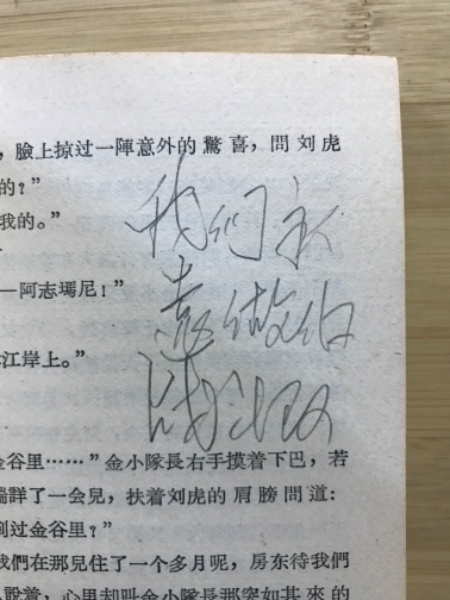 ，臉上掠过一陣意外的驚喜，問刘虎
的？”
我的。”
—阿志瑪尼！”
江岸上。”
我们永
远做
金谷里……”金小隊長右手摸着下巴，若
端詳了一会兒，扶着刘虎的肩膀問道：
到过金谷里？”
我們在那兒住了一个多月呢，房东待我們
說着，心里却叫金小隊長那突如其來的